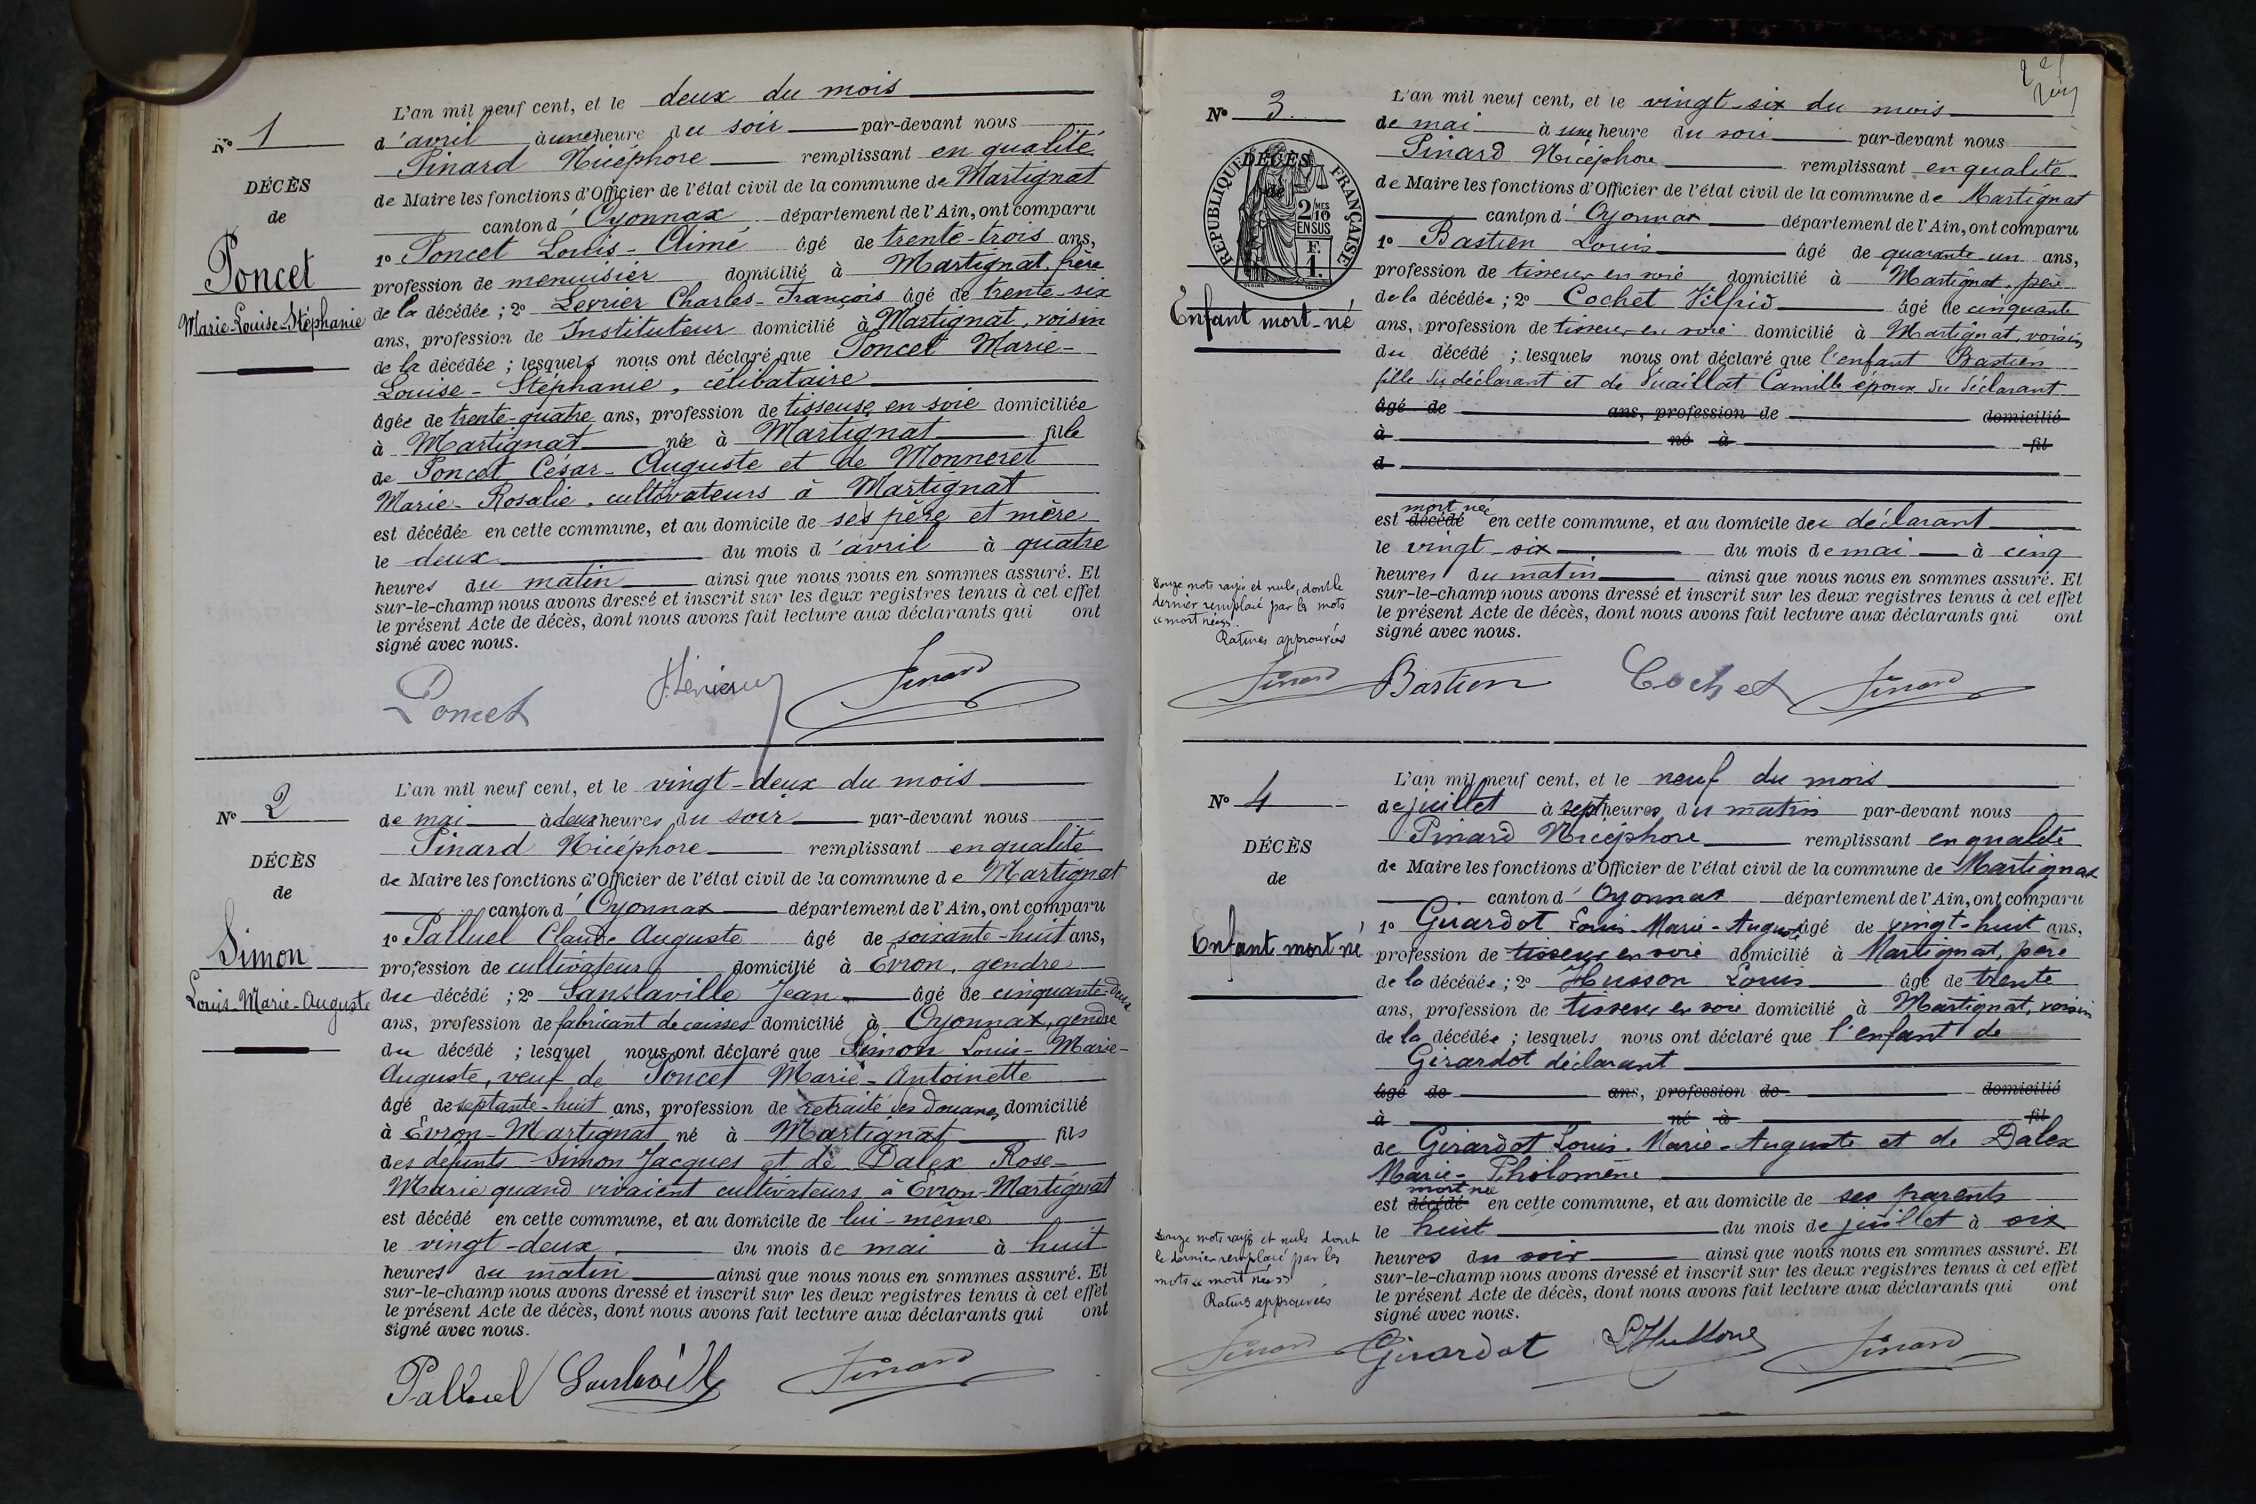 L'an mil neuf cent, et le deux du mois
d'avril à une heure du soir par-devant nous
Pinard Nicéphore remplissant en qualité
de Maire les fonctions d'Officier de l'état civil de la commune de Martignat
canton d'Oyonnax département de l'Ain, ont comparu
1º Poncet Louis-Aimé âgé de trente-trois ans,
profession de menuisier domicilié à Martignat, frère
de la décédée ; 2º Levrier Charles-François âgé de trente-six
ans, profession de Instituteur domicilié à Martignat, voisin
de la décédée ; lesquels nous ont déclaré que Poncet Marie-
Louise-Stéphanie, célibataire
âgée de trente-quatre ans, profession de tisseuse en soie domiciliée
à Martignat née à Martignat fille
de Poncet César-Auguste et de Monneret
Marie-Rosalie, cultivateurs à Martignat
est décédée en cette commune, et au domicile de ses père et mère
le deux du mois d'avril à quatre
heures du matin ainsi que nous nous en sommes assuré. Et
sur-le-champ nous avons dressé et inscrit sur les deux registres tenus à cet effet
le présent Acte de décès, dont nous avons fait lecture aux déclarants qui ont
signé avec nous.
Nº 1
DÉCÈS
de
Poncet
Marie-Louise-Stéphanie
Poncet Pinard
L'an mil neuf cent, et le vingt-deux du mois
de mai à deux heures du soir par-devant nous
Pinard Nicéphore remplissant en qualité
de Maire les fonctions d'Officier de l'état civil de la commune de Martignat
canton d'Oyonnax département de l'Ain, ont comparu
1º Palluel Claude Auguste âgé de soixante-huit ans,
profession de cultivateur domicilié à Evron, gendre
du décédé ; 2º Sanslaville Jean âgé de cinquante-deux
ans, profession de fabricant de caisses domicilié à Oyonnax, gendre
du décédé ; lesquel nous ont déclaré que Simon Louis-Marie-
Auguste, veuf de Poncet Marie-Antoinette
âgé de septante-huit ans, profession de retraité des Douanes domicilié
à Evron-Martignat né à Martignat fils
des defunts Simon Jacques et de Dalex Rose-
Marie quand vivaient cultivateurs à Evron-Martignat
est décédé en cette commune, et au domicile de lui-même
le vingt-deux du mois de mai à huit
heures du matin ainsi que nous nous en sommes assuré. Et
sur-le-champ nous avons dressé et inscrit sur les deux registres tenus à cet effet
le présent Acte de décès, dont nous avons fait lecture aux déclarants qui ont
signé avec nous.
Nº 2
DÉCÈS
de
Simon
Louis-Marie-Auguste
Palluel Pinard
L'an mil neuf cent, et le vingt-six du mois
de mai à une heure du soir par-devant nous
Pinard Nicéphore remplissant en qualité
de Maire les fonctions d'Officier de l'état civil de la commune de Martignat
canton d'Oyonnax département de l'Ain, ont comparu
1º Bastien Louis âgé de quarante-un ans,
profession de tisseur en soie domicilié à Martignat, père
de la décédée ; 2º Cochet Vilfrid âgé de cinquante
ans, profession de tisseur en soie domicilié à Martignat, voisin
du décédé ; lesquels nous ont déclaré que l'enfant Bastien
fille du déclarant et de Vuaillat Camille époux du déclarant
âgé de ans, profession de domicilié
à né à fil
d
mort née
est décédé en cette commune, et au domicile du déclarant
le vingt-six du mois de mai à cinq
heures du matin ainsi que nous nous en sommes assuré. Et
sur-le-champ nous avons dressé et inscrit sur les deux registres tenus à cet effet
le présent Acte de décès, dont nous avons fait lecture aux déclarants qui ont
signé avec nous.
Nº 3.
DÉCÈS
de
RÉPUBLIQUE FRANÇAISE
2 MES
10
EN SUS
F.
1.
Enfant mort-né
Douze mots rayés et nuls, dont le
dernier remplacé par les mots
"mort née".
Ratures approuvées
Pinard Bastien Cochet Pinard
L'an mil neuf cent, et le neuf du mois
de juillet à sept heures du matin par-devant nous
Pinard Nicéphore remplissant en qualité
de Maire les fonctions d'Officier de l'état civil de la commune de Martignat
canton d'Oyonnax département de l'Ain, ont comparu
1º Girardot Louis-Marie-Auguste âgé de vingt-huit ans,
profession de tisseur en soie domicilié à Martignat, père
de la décédée ; 2º Husson Louis âgé de trente
ans, profession de tisseur en soie domicilié à Martignat, voisin
de la décédée ; lesquels nous ont déclaré que l'enfant de
Girardot déclarant
âgé de ans, profession de domicilié
à né à fil
de Girardot Louis-Marie-Auguste et de Dalex
Marie-Pholomène
mort née
est décédé en cette commune, et au domicile de ses parents
le huit du mois de juillet à six
heures du soir ainsi que nous nous en sommes assuré. Et
sur-le-champ nous avons dressé et inscrit sur les deux registres tenus à cet effet
le présent Acte de décès, dont nous avons fait lecture aux déclarants qui ont
signé avec nous.
Nº 4
DÉCÈS
de
Enfant mort né
Douze mots rayés et nuls dont
le dernier remplacé par les
mots "mort née"
Ratures approuvées
Pinard Girardot L Husson Pinard